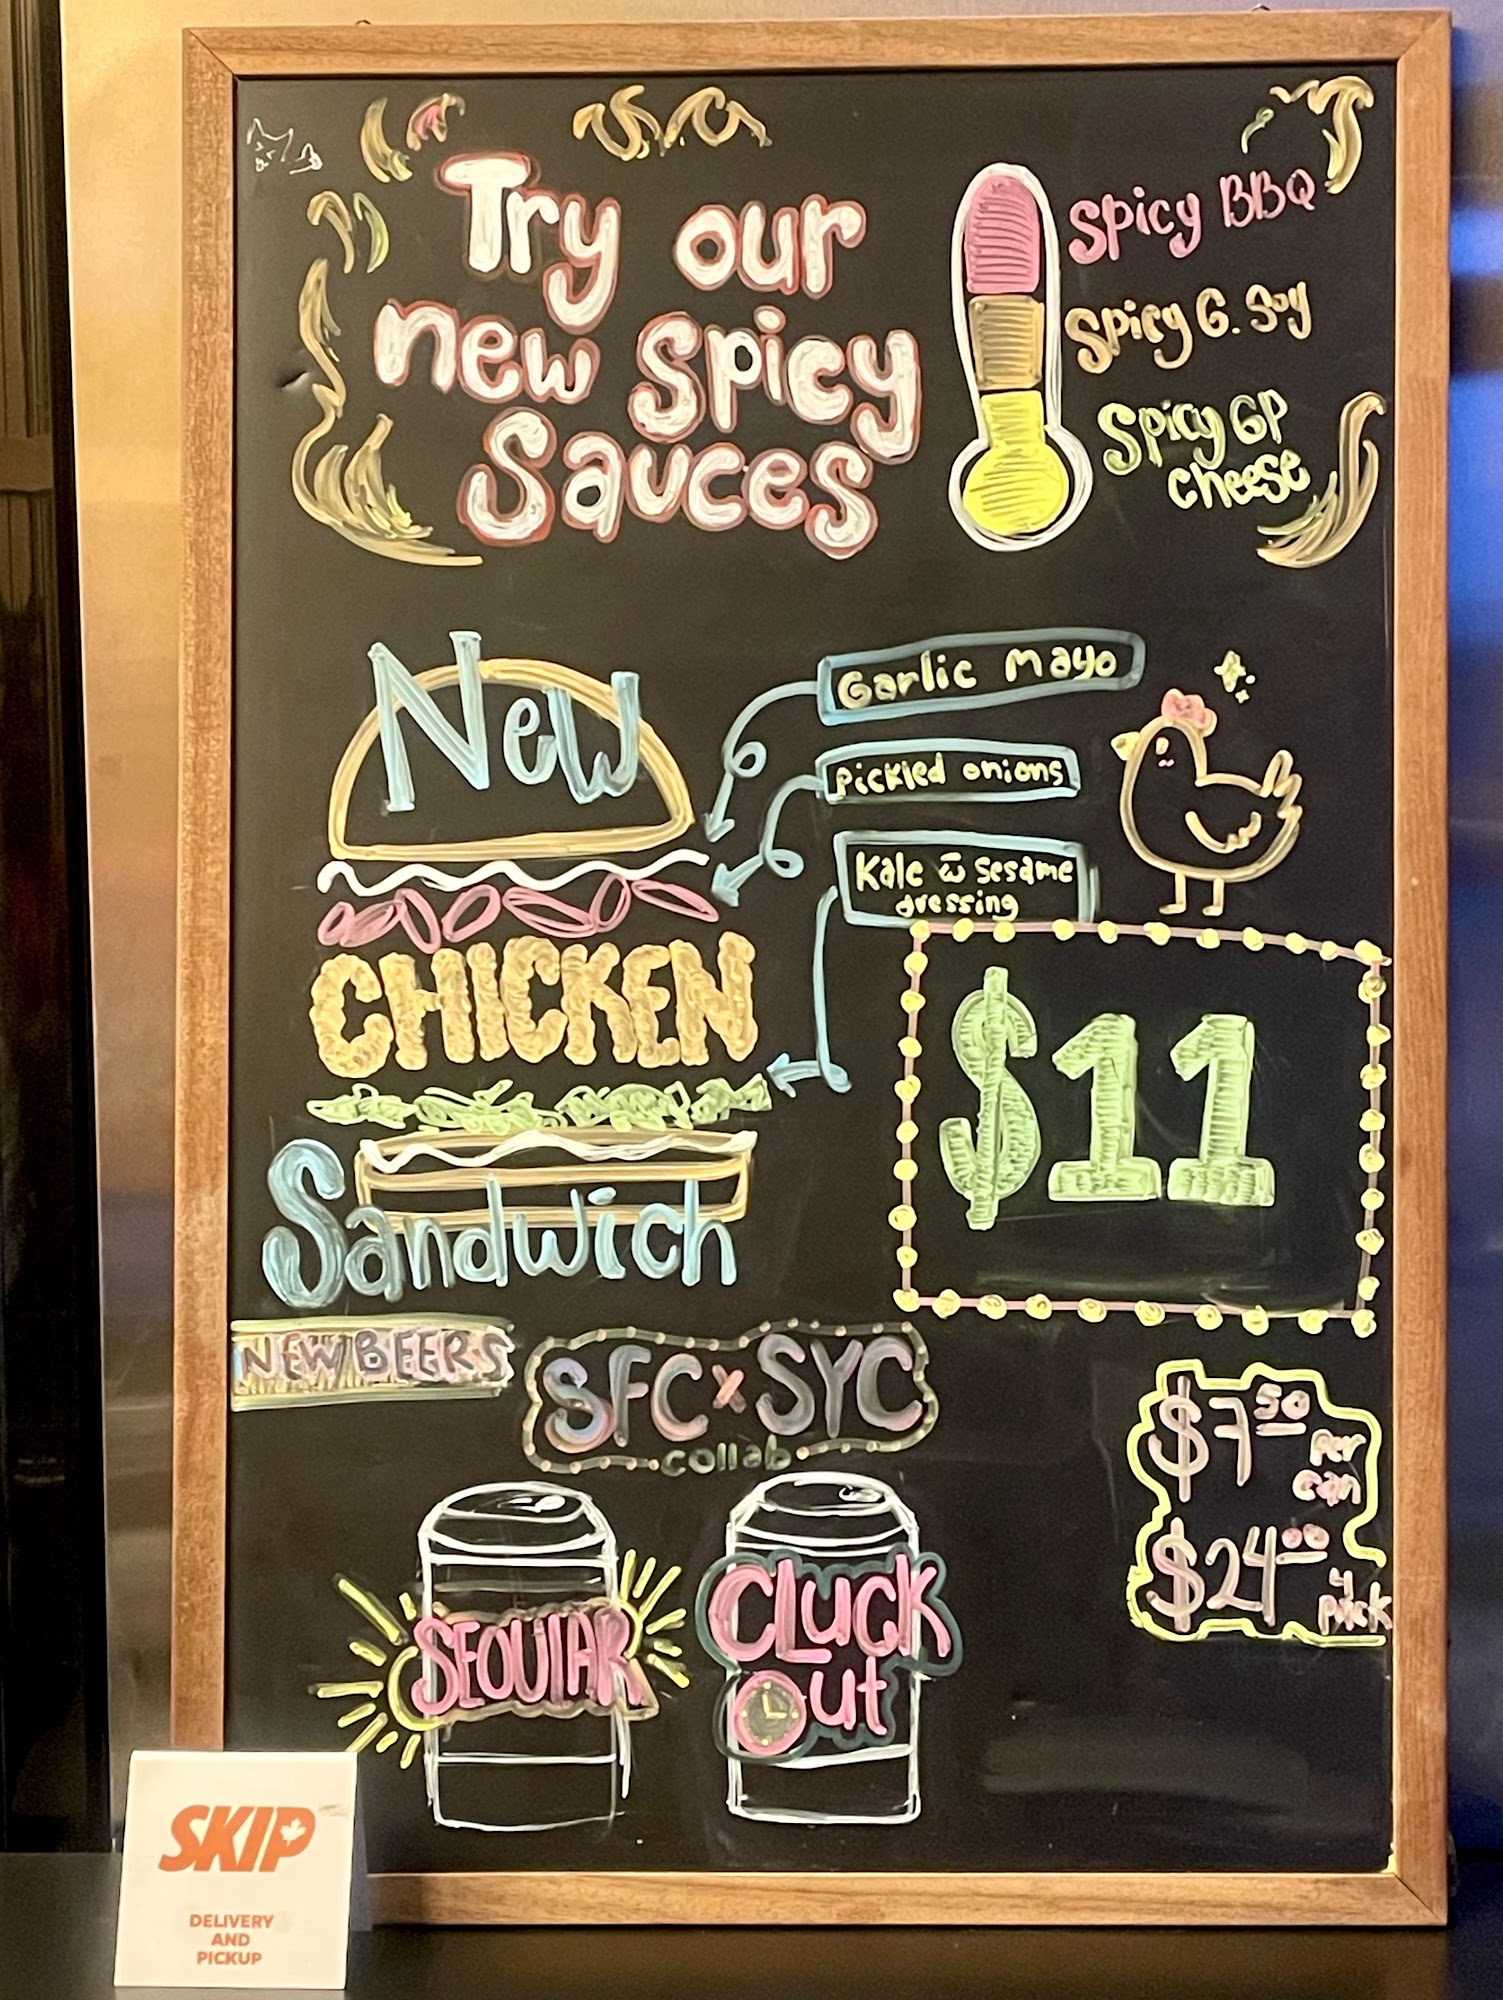 Try our
new spicy
Sauces
Spicy BBQ
Spicy G. Soy
Spicy GP
cheese
New
CHICKEN
Sandwich
Garlic Mayo
Pickled onions
Kale w̄ sesame
dressing
$11
NEW BEERS
SFC x SYC
collab
SEOULAR
CLUCK
Out
$7.50
per
can
$24.00
4
pack
SKIP
DELIVERY
AND
PICKUP